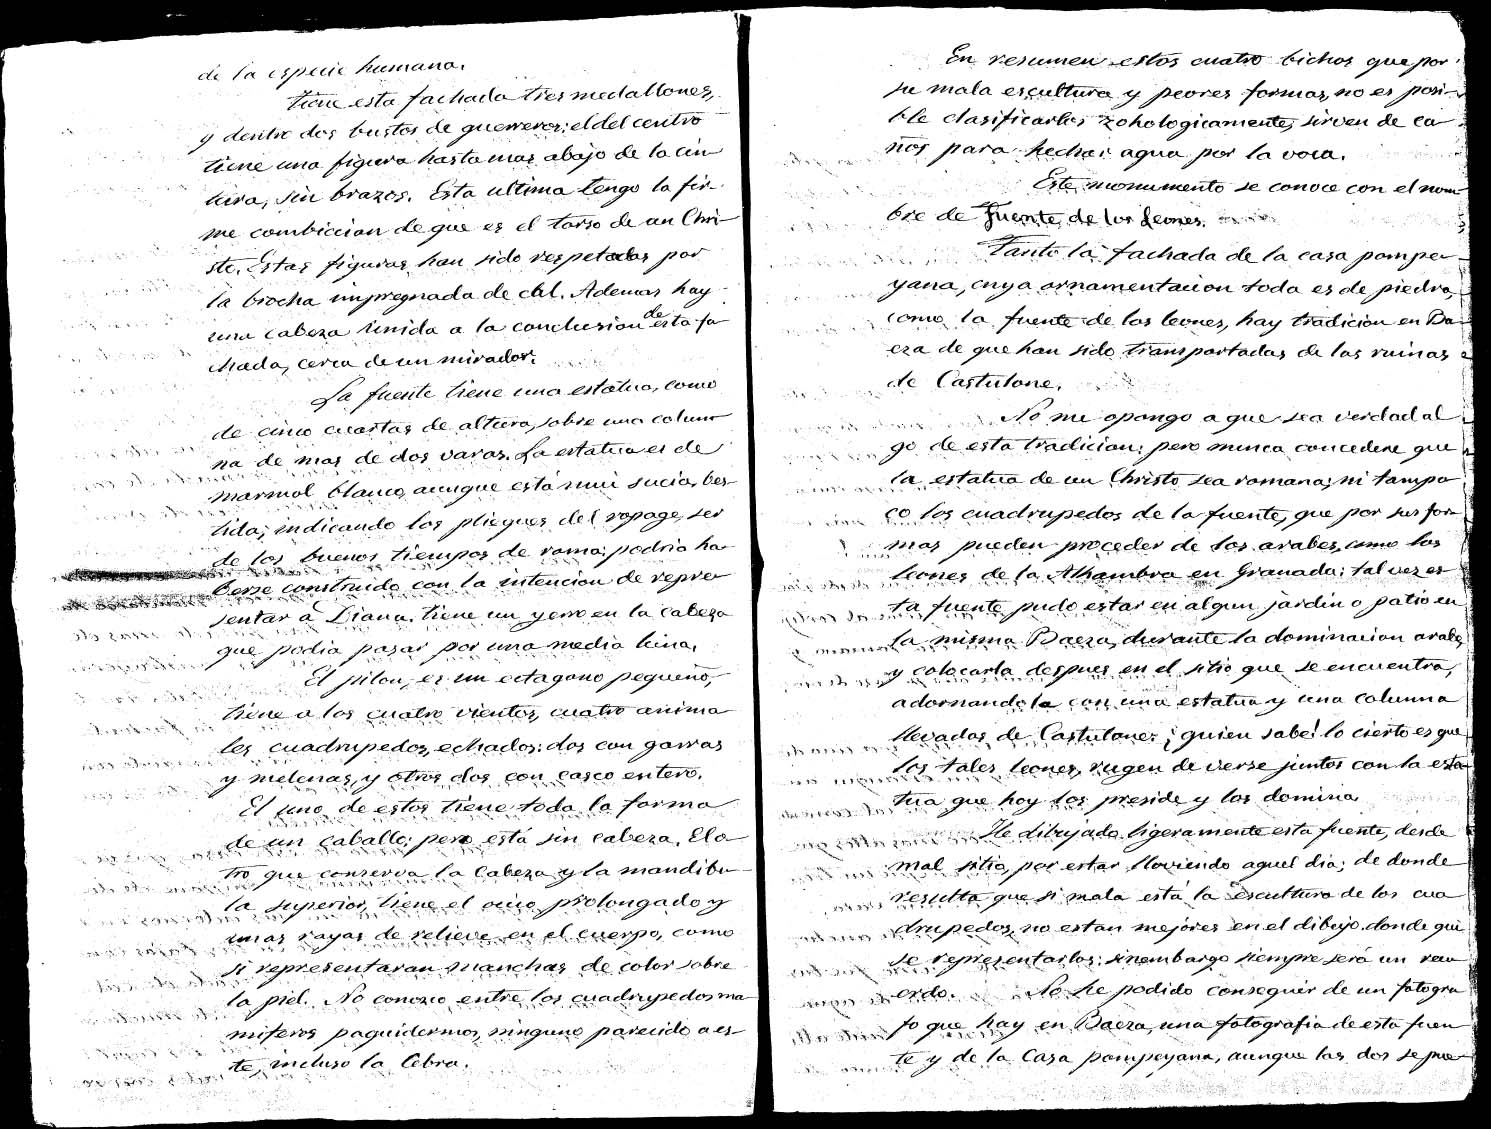 de la especie humana.
Tiene esta fachada tres medallones,
y dentro dos bustos de guerreros; el del centro
tiene una figura hasta mas abajo de la cin
tura, sin brazos. Esta ultima tengo la fir-
me combiccion de que es el torso de un Chri-
sto. Estas figuras han sido respetadas por
la brocha impregnada de cal. Ademas hay
una cabeza unida a la conclusion de esta fa
chada, cerca de un mirador.
La fuente tiene una estatua, como
de cinco cuartas de altura, sobre una colum
na de mas de dos varas. La estatua es de
marmol blanco, aunque está mui sucia, bes-
tida; indicando los pliegues del ropage, ser
de los buenos tiempos de roma; podria ha-
berse construido con la intencion de repre-
sentar à Diana. tiene un yerro en la cabeza
que podia pasar por una media luna.
El pilon, es un ectagono pequeño,
tiene a los cuatro vientos, cuatro anima
les cuadrupedos, echados: dos con garras
y melenas, y otros dos con casco entero.
El uno de estos tiene toda la forma
de un caballo; pero está sin cabeza. El o-
tro que conserva la cabeza y la mandibu-
la superior, tiene el ocico prolongado y
unas rayas de relieve en el cuerpo, como
si representaran manchas de color sobre
la piel. No conozco entre los cuadrupedos ma-
miferos paquidermos, ninguno parecido a es-
te, incluso la Cebra.
En resumen estos cuatro bichos que por
su mala escultura y peores formas, no es posi-
ble clasificarlos zohologicamente, sirven de ca-
ños para hechar agua por la voca.
Este monumento se conoce con el nom-
bre de Fuente de los Leones.
Tanto la fachada de la casa pompe-
yana, cuya ornamentacion toda es de piedra,
como la fuente de los leones, hay tradicion en Ba-
eza de que han sido transportadas de las ruinas
de Castulone.
No me opongo a que sea verdad al
go de esta tradicion; pero nunca concedere que
la estatua de un Christo sea romana; ni tampo
co los cuadrupedos de la fuente, que por sus for-
mas pueden proceder de los arabes, como los
leones de la Alhambra en Granada; tal vez es-
ta fuente pudo estar en algun jardin o patio en
la misma Baeza, durante la dominacion arabe,
y colocarla despues en el sitio que se encuentra,
adornandola con una estatua y una columna
llevadas de Castulone; ¡quien sabe! lo cierto es que
los tales leones, rugen de verse juntos con la esta-
tua que hoy los preside y los domina.
He dibujado ligeramente esta fuente, desde
mal sitio, por estar lloviendo aquel dia; de donde
resulta que si mala está la escultura de los cua
drupedos, no estan mejores en el dibujo donde qui
se representarlos; sinembargo siempre será un recu
erdo. No he podido conseguir de un fotogra
fo que hay en Baeza, una fotografia de esta fuen
te y de la Casa pompeyana, aunque las dos se pue-